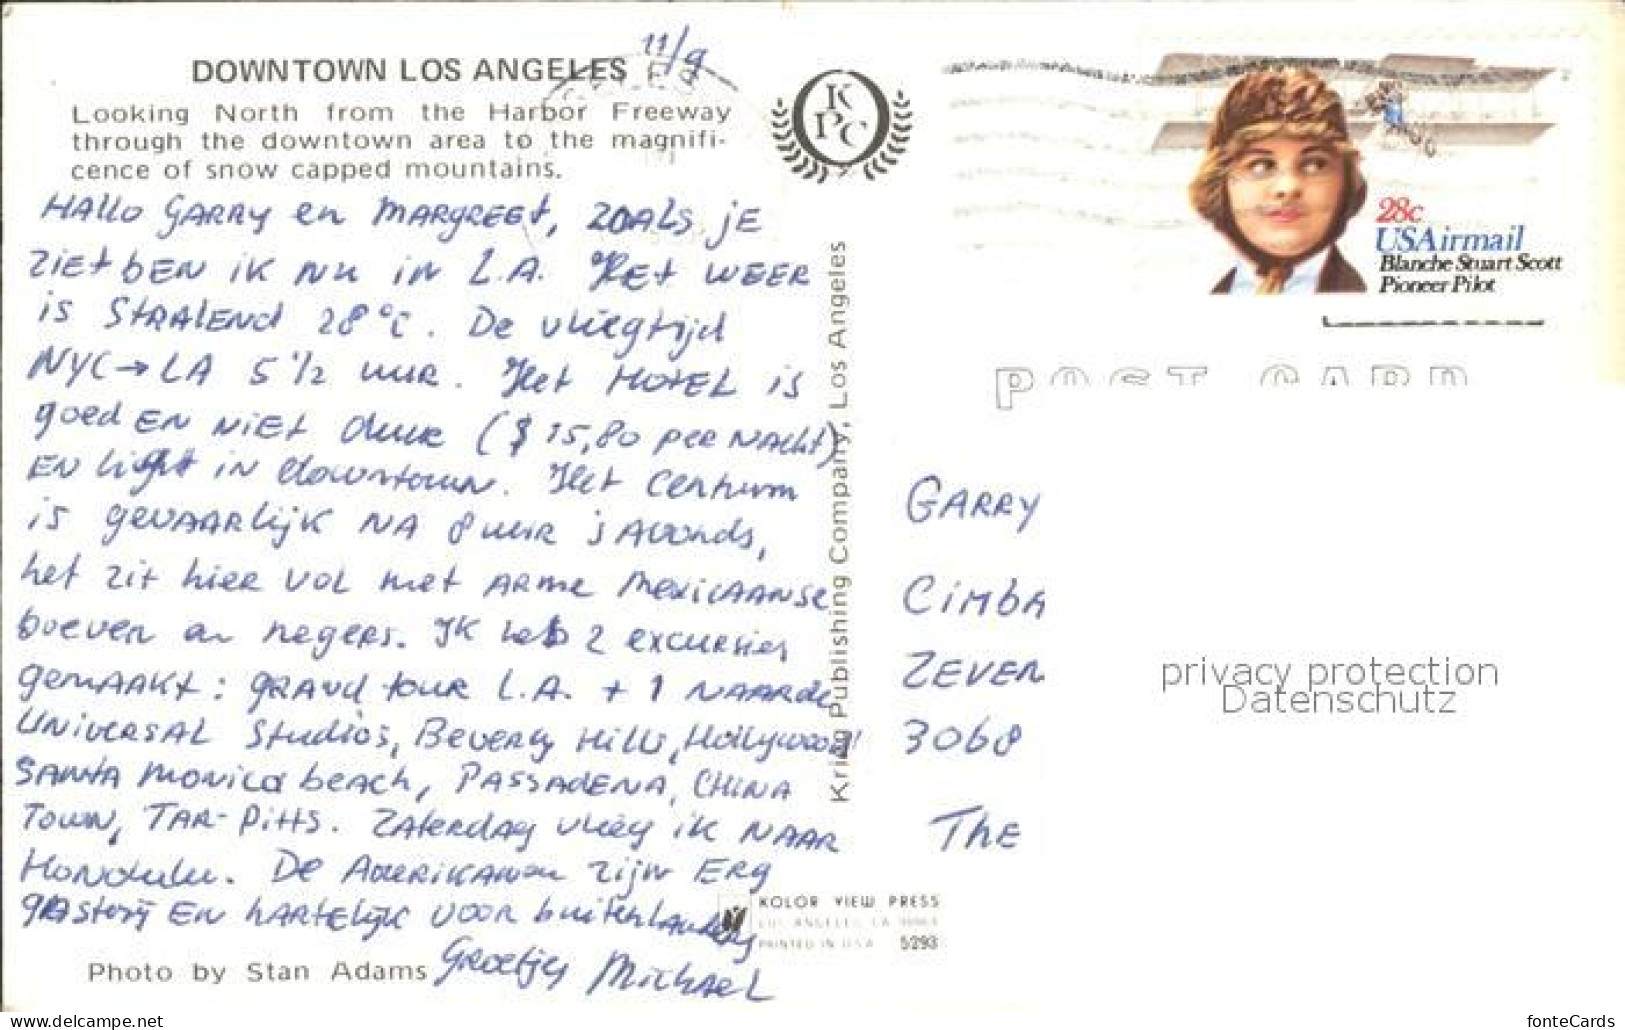 11/9
DOWNTOWN LOS ANGELES
Looking North from the Harbor Freeway
through the downtown area to the magnifi-
cence of snow capped mountains.
HALLO GARRY en MARGREET, ZOALS JE
ZIET BEN IK NU IN L.A. HET WEER
is STRALEND 28°C. De vliegtijd
NYC→LA 5 1/2 uur. Het HOTEL is
goed EN NIET duur ($ 15,80 per NACHT)
EN ligt in downtown. Het Centrum
is gevaarlijk NA 8 uur 's Avonds,
het zit hier vol met ARME Mexicaanse
boeven en negers. IK heb 2 excursies
gemaakt: grand tour L.A. + 1 NAAR de
Universal Studios, Beverly Hills, Hollywood
SANTA MONICA beach, PASSADENA, CHINA
Town, TAR-PITTS. Zaterdag vlieg ik NAAR
Honolulu. De Amerikanen zijn ERG
gastvrij EN hartelijk voor buitenlanders
Groetjes Michael
Photo by Stan Adams
K
P C
Krieg Publishing Company, Los Angeles
KOLOR VIEW PRESS
LOS ANGELES, CA
PRINTED IN U.S.A. 5293
28c
USAirmail
Blanche Stuart Scott
Pioneer Pilot
POST CARD
GARRY
CIMBA
ZEVEN
3068
THE
privacy protection
Datenschutz
www.delcampe.net
fonteCards